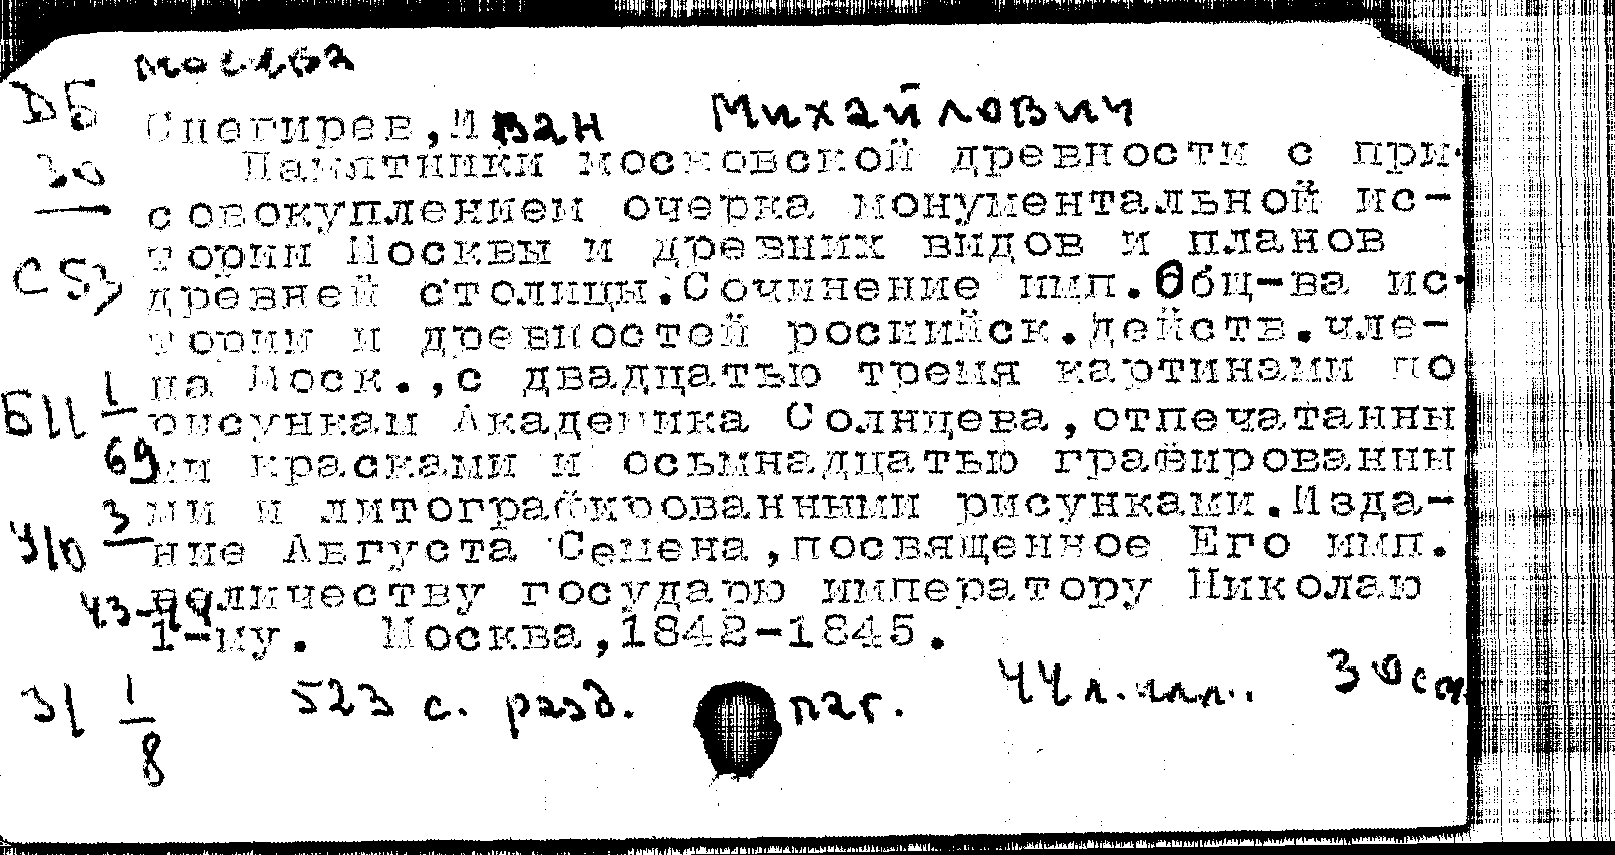 москва
ДБ
Снегирев, Иван Михайлович
30
Памятники московской древности с при-
совокуплением очерка монументальной ис-
тории Москвы и древних видов и планов
С53
древней столицы.Сочинение имп.Общ-ва ис-
тории и древностей росиийск.действ.чле-
на Моск.,с двадцатью тремя картинами по
БИ 1/69
рисункам Академика Солнцева,отпечатанны
ми красками и осьмнадцатью графированны
ми и литографированными рисунками.Изда-
У10 3/43-44
ние Августа Семена,посвященное Его имп.
величеству государю императору Николаю
1-му. Москва,1842-1845.
31 1/8
523 с. разд. паг. 44 л. илл.. 30 см.